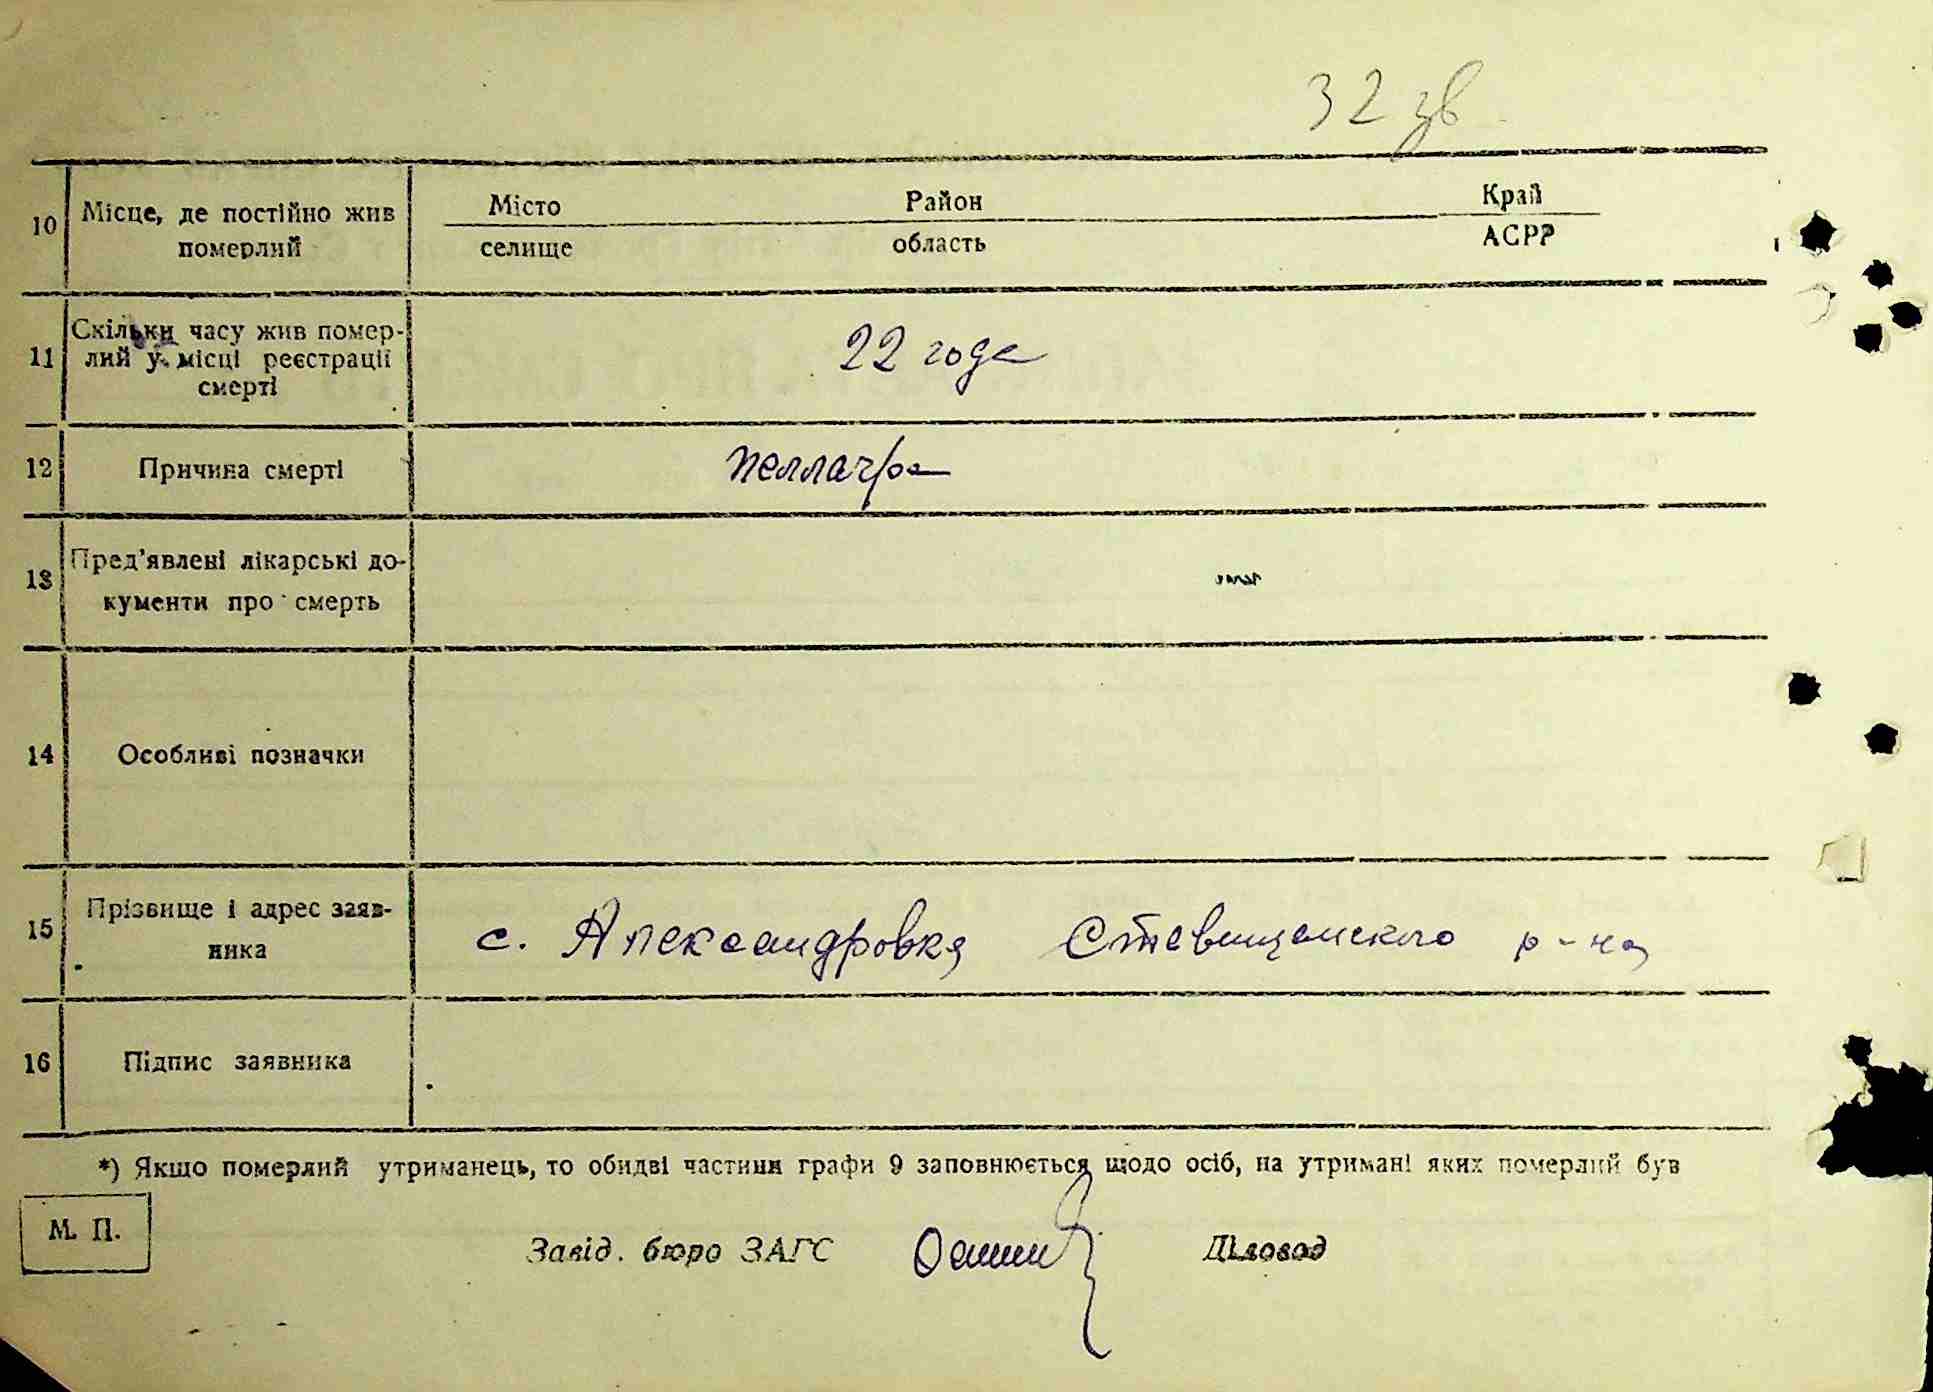 32 зв
10 Місце, де постійно жив померлий
Місто Район Край
селище область АСРР
11 Скільки часу жив помер-
лий у місці реєстрації
смерті
22 года
12 Причина смерті пеллагра
13 Пред’явлені лікарські до-
кументи про смерть
14 Особливі позначки
15 Прізвище і адрес заяв-
ника
с. Александровка Ставищанского р-на
16 Підпис заявника
*) Якщо померлий утриманець, то обидві частини графи 9 заповнюється щодо осіб, на утримані яких померлий був
М. П.
Завід. бюро ЗАГС Діловод